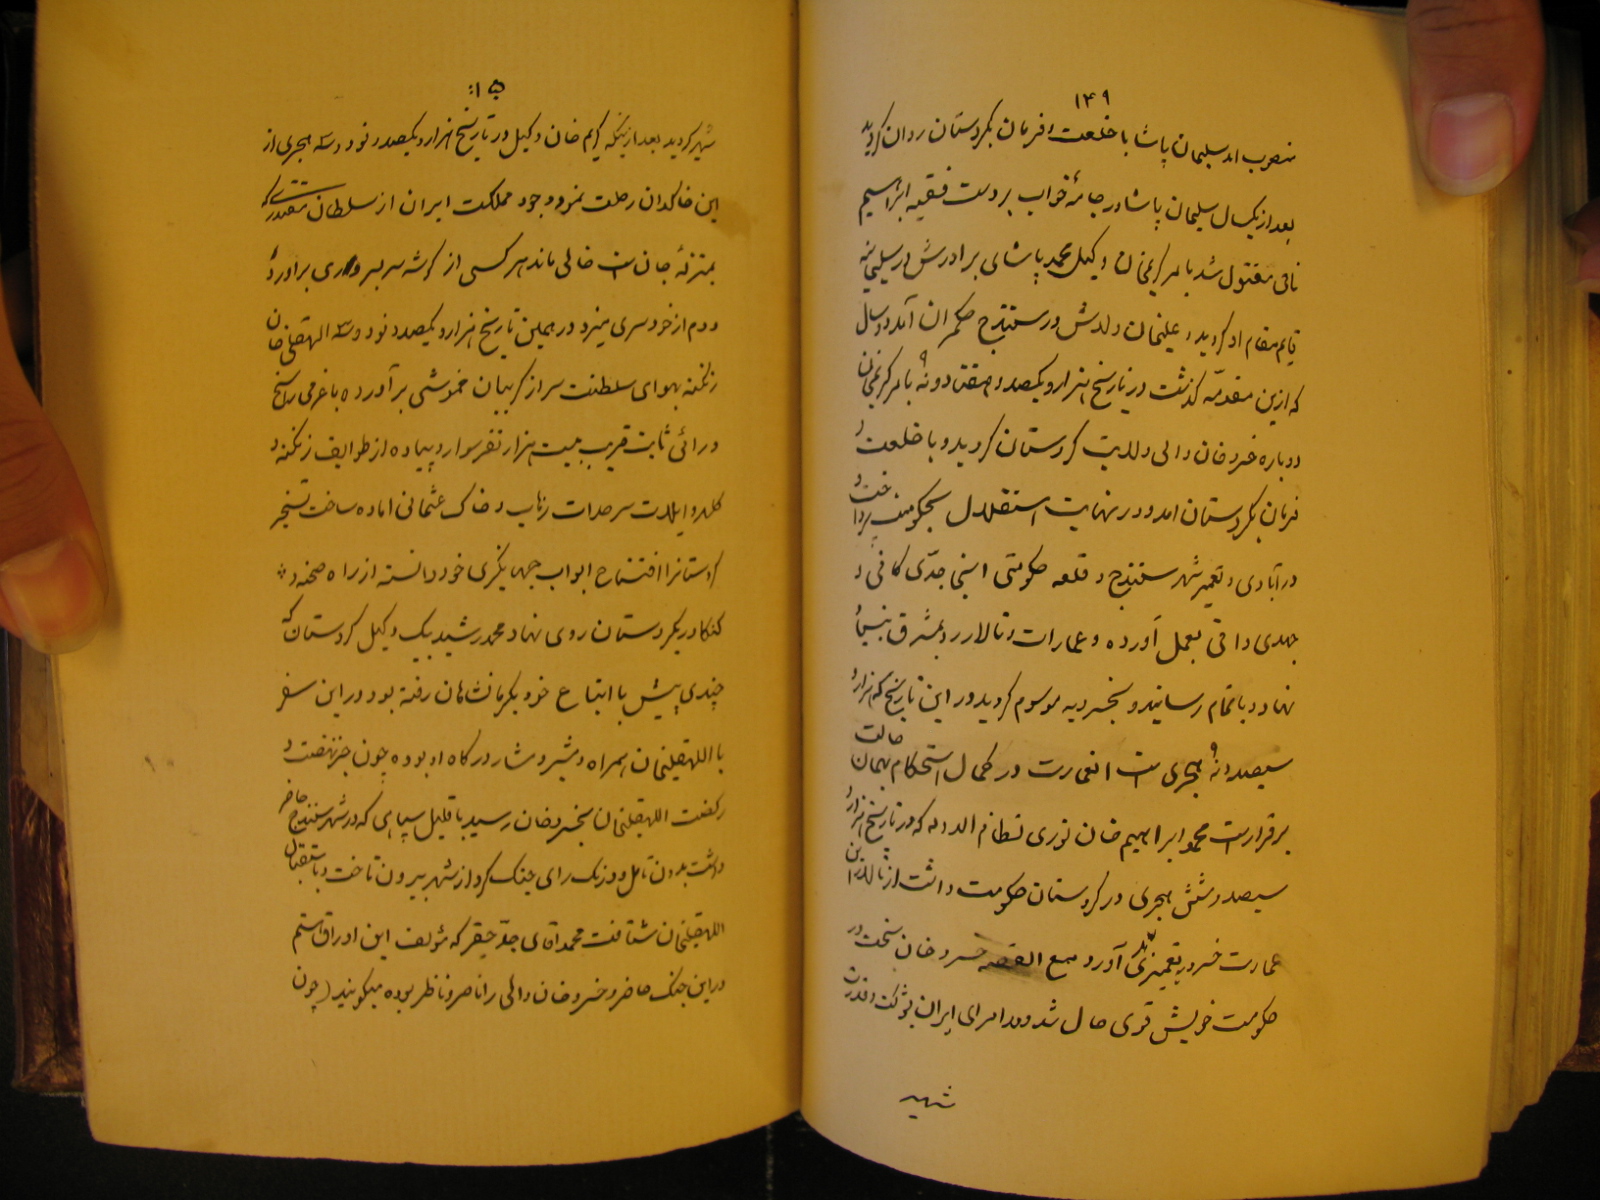 ۱۴۹
منصوب امد سلیمان پاشا با خلعت و فرمان بکردستان روان کردید
بعد از یکسال سلیمان پاشا در جامهٔ خواب بر دست فقیه ابراهیم
نامی مقتول شد با مر کریمخان وکیل محمد پاشای برادرش در سلیمانیه
قایم مقام او کردید و علیخان ولدش در سنندج حکمران آمد دو سال
که ازین مقدمه کذشت در تاریخ هزار و یکصد و هفتاد و نه بامر کریمخان
دوباره خسرو خان والی ولایت کردستان کردید و با خلعت و
فرمان بکردستان امد و در نهایت استقلال بحکومت پرداخت و
در آبادی و تعمیر شهر سنندج و قلعه حکومتی اینجا جدّی کافی و
جهدی وافی بعمل آورده و عمارات و تالار رو بمشرق بنیاد
نهاد و باتمام رسانید و بخسرویه موسوم کردید در این تاریخ که هزار و
سیصد و نه هجری است انعمارت در کمال استحکام بهمان حالت
برقرار است محمد ابراهیم خان نوری نظام الدوله که در تاریخ هزار و
سیصد و شش هجری در کردستان حکومت داشت از تالار این
عمارت خسرویه تعمیری آورد مع القصه خسرو خان تخت در
حکومت خویش قوی حال شد و مد امرای ایران بشوکت و قدرت
شهیر
۱۵۰
شهیر کردید بعد ازینکه کریم خان وکیل در تاریخ هزار و یکصد و نود و سه هجری از
این خاکدان رحلت نمود وجود مملکت ایران از سلطان مقتدری که
بمنزلهٔ جان است خالی ماند هر کسی از کوشه سر بسرداری برآورد
و دم از خودسری میزد در همین تاریخ هزار و یکصد و نود و سه اللهقلی خان
زنکنه بهوای سلطنت سر از کریبان خموشی برآورده با عزمی راسخ
و رائی ثابت قریب بیست هزار نفر سوار و پیاده از طوایف زنکنه و
کلهر و ایلات سرحدات زهاب و خاک عثمانی اماده ساخت تسخیر
کردستانرا افتتاح ابواب جهانکیری خود دانسته از راه صحنه و
کنکاور بکردستان روی نهاد محمد رشید بیک وکیل کردستان که
چندی پیش با اتباع خود بکرمانشاهان رفته بود در این سفر
با اللهقلیخان همراه و مشیر و مشار درکاه او بوده چون خبر نهضت و
رکضت اللهقلیخان بخسرو خان رسید با قلیل سپاهی که در شهر سنندج حاضر
داشت بدون تامل و درنک رای جنک کرد از شهر بیرون تاخت و باستقبال
اللهقلیخان شتافت محمد آقای جد حقیر که مؤلف این اوراق استم
در این جنک حاضر و خسرو خان والی را ناصر و ناظر بوده میکویند (چون